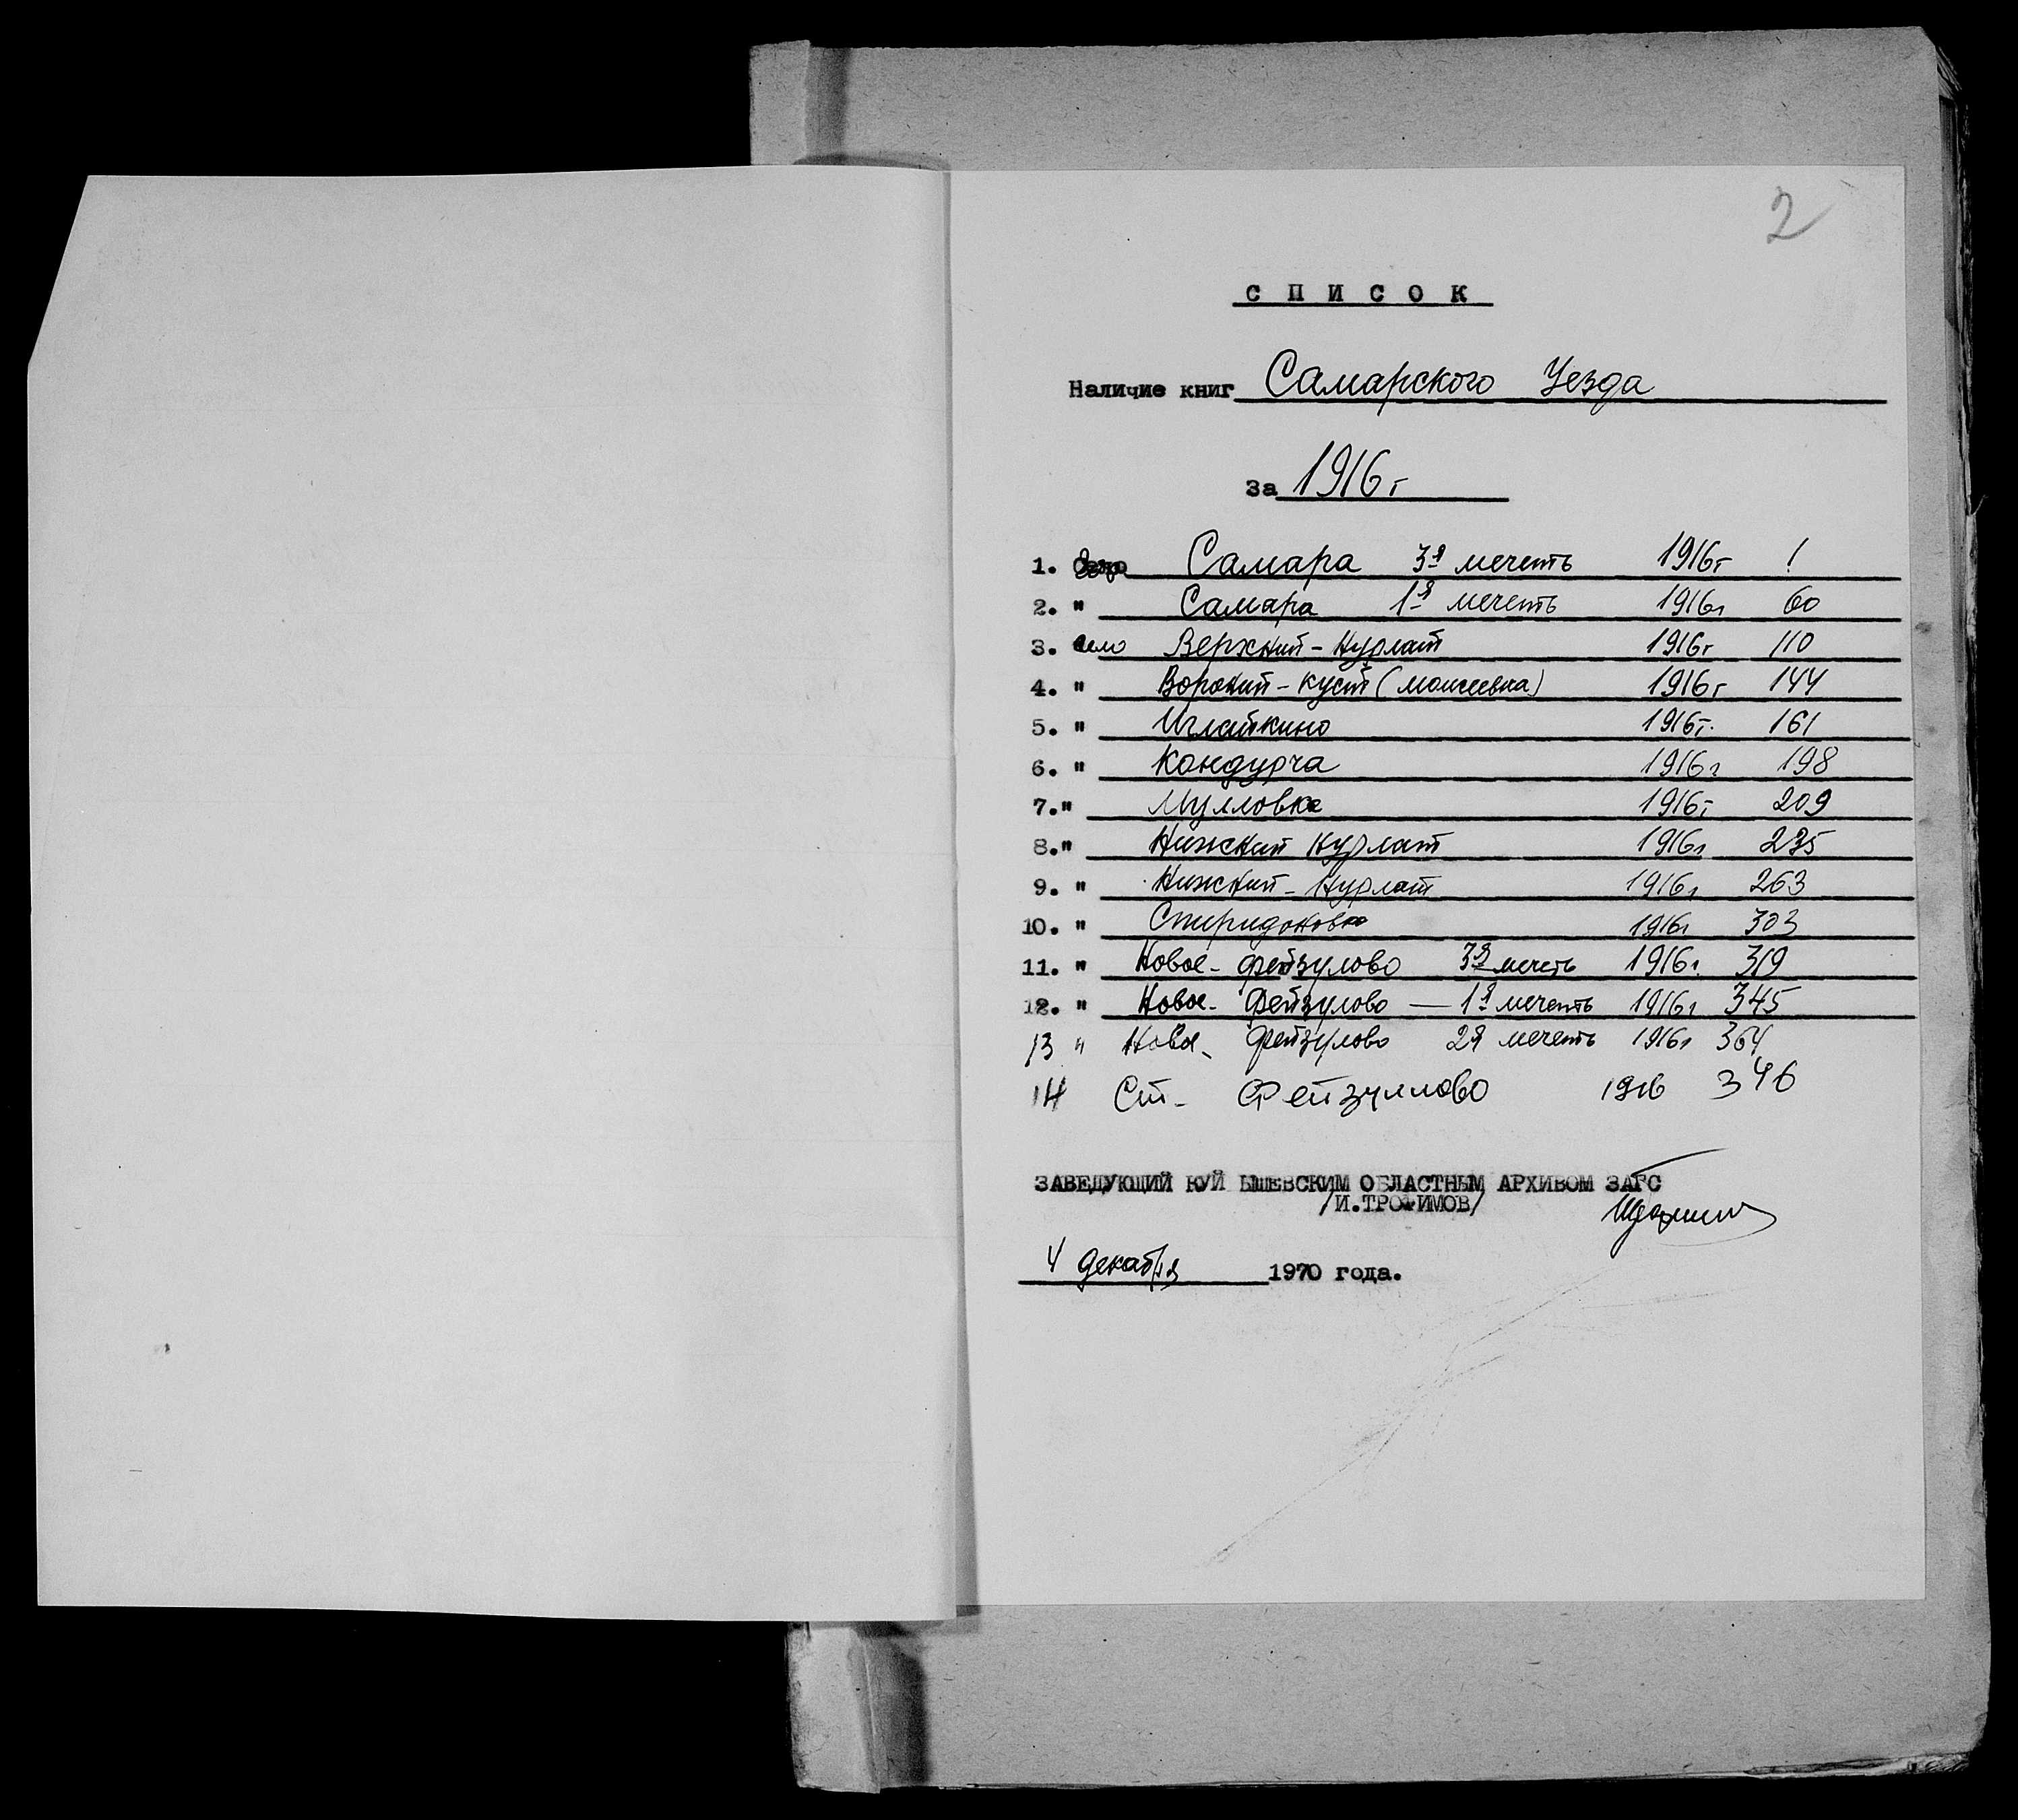 2
С П И С О К
Наличие книг Самарского Уезда
за 1916г
1. Самара 3я мечеть 1916г 1
2. " Самара 1я мечеть 1916г 60
3. село Верхний-Нурлат 1916г 110
4. " Вороний-куст (моисеевка) 1916г 144
5. " Иглайкино 1916г. 161
6. " Кондурча 1916г 198
7. " Мулловка 1916г 209
8. " Нижний Нурлат 1916г 235
9. " Нижний-Нурлат 1916г 263
10. " Спиридоновка 1916г 303
11. " Новое-фейзулово 3я мечеть 1916г. 319
12. " Новое-Фейзулово — 1я мечеть 1916г 345
13 " Новое-фейзулово 2я мечеть 1916г 364
14 Ст- Фейзуллово 1916 396
ЗАВЕДУЮЩИЙ КУЙ ЫШЕВСКИМ ОБЛАСТНЫМ АРХИВОМ ЗАГС
/И.ТРОФИМОВ/
4 декабря 1970 года.